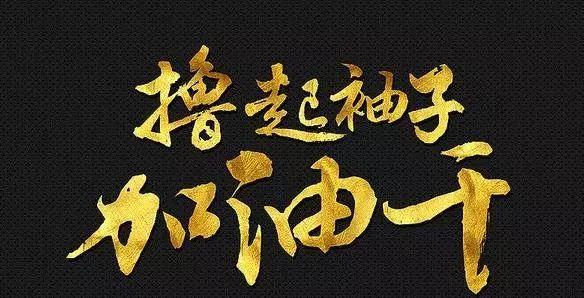 撸起袖子
加油干